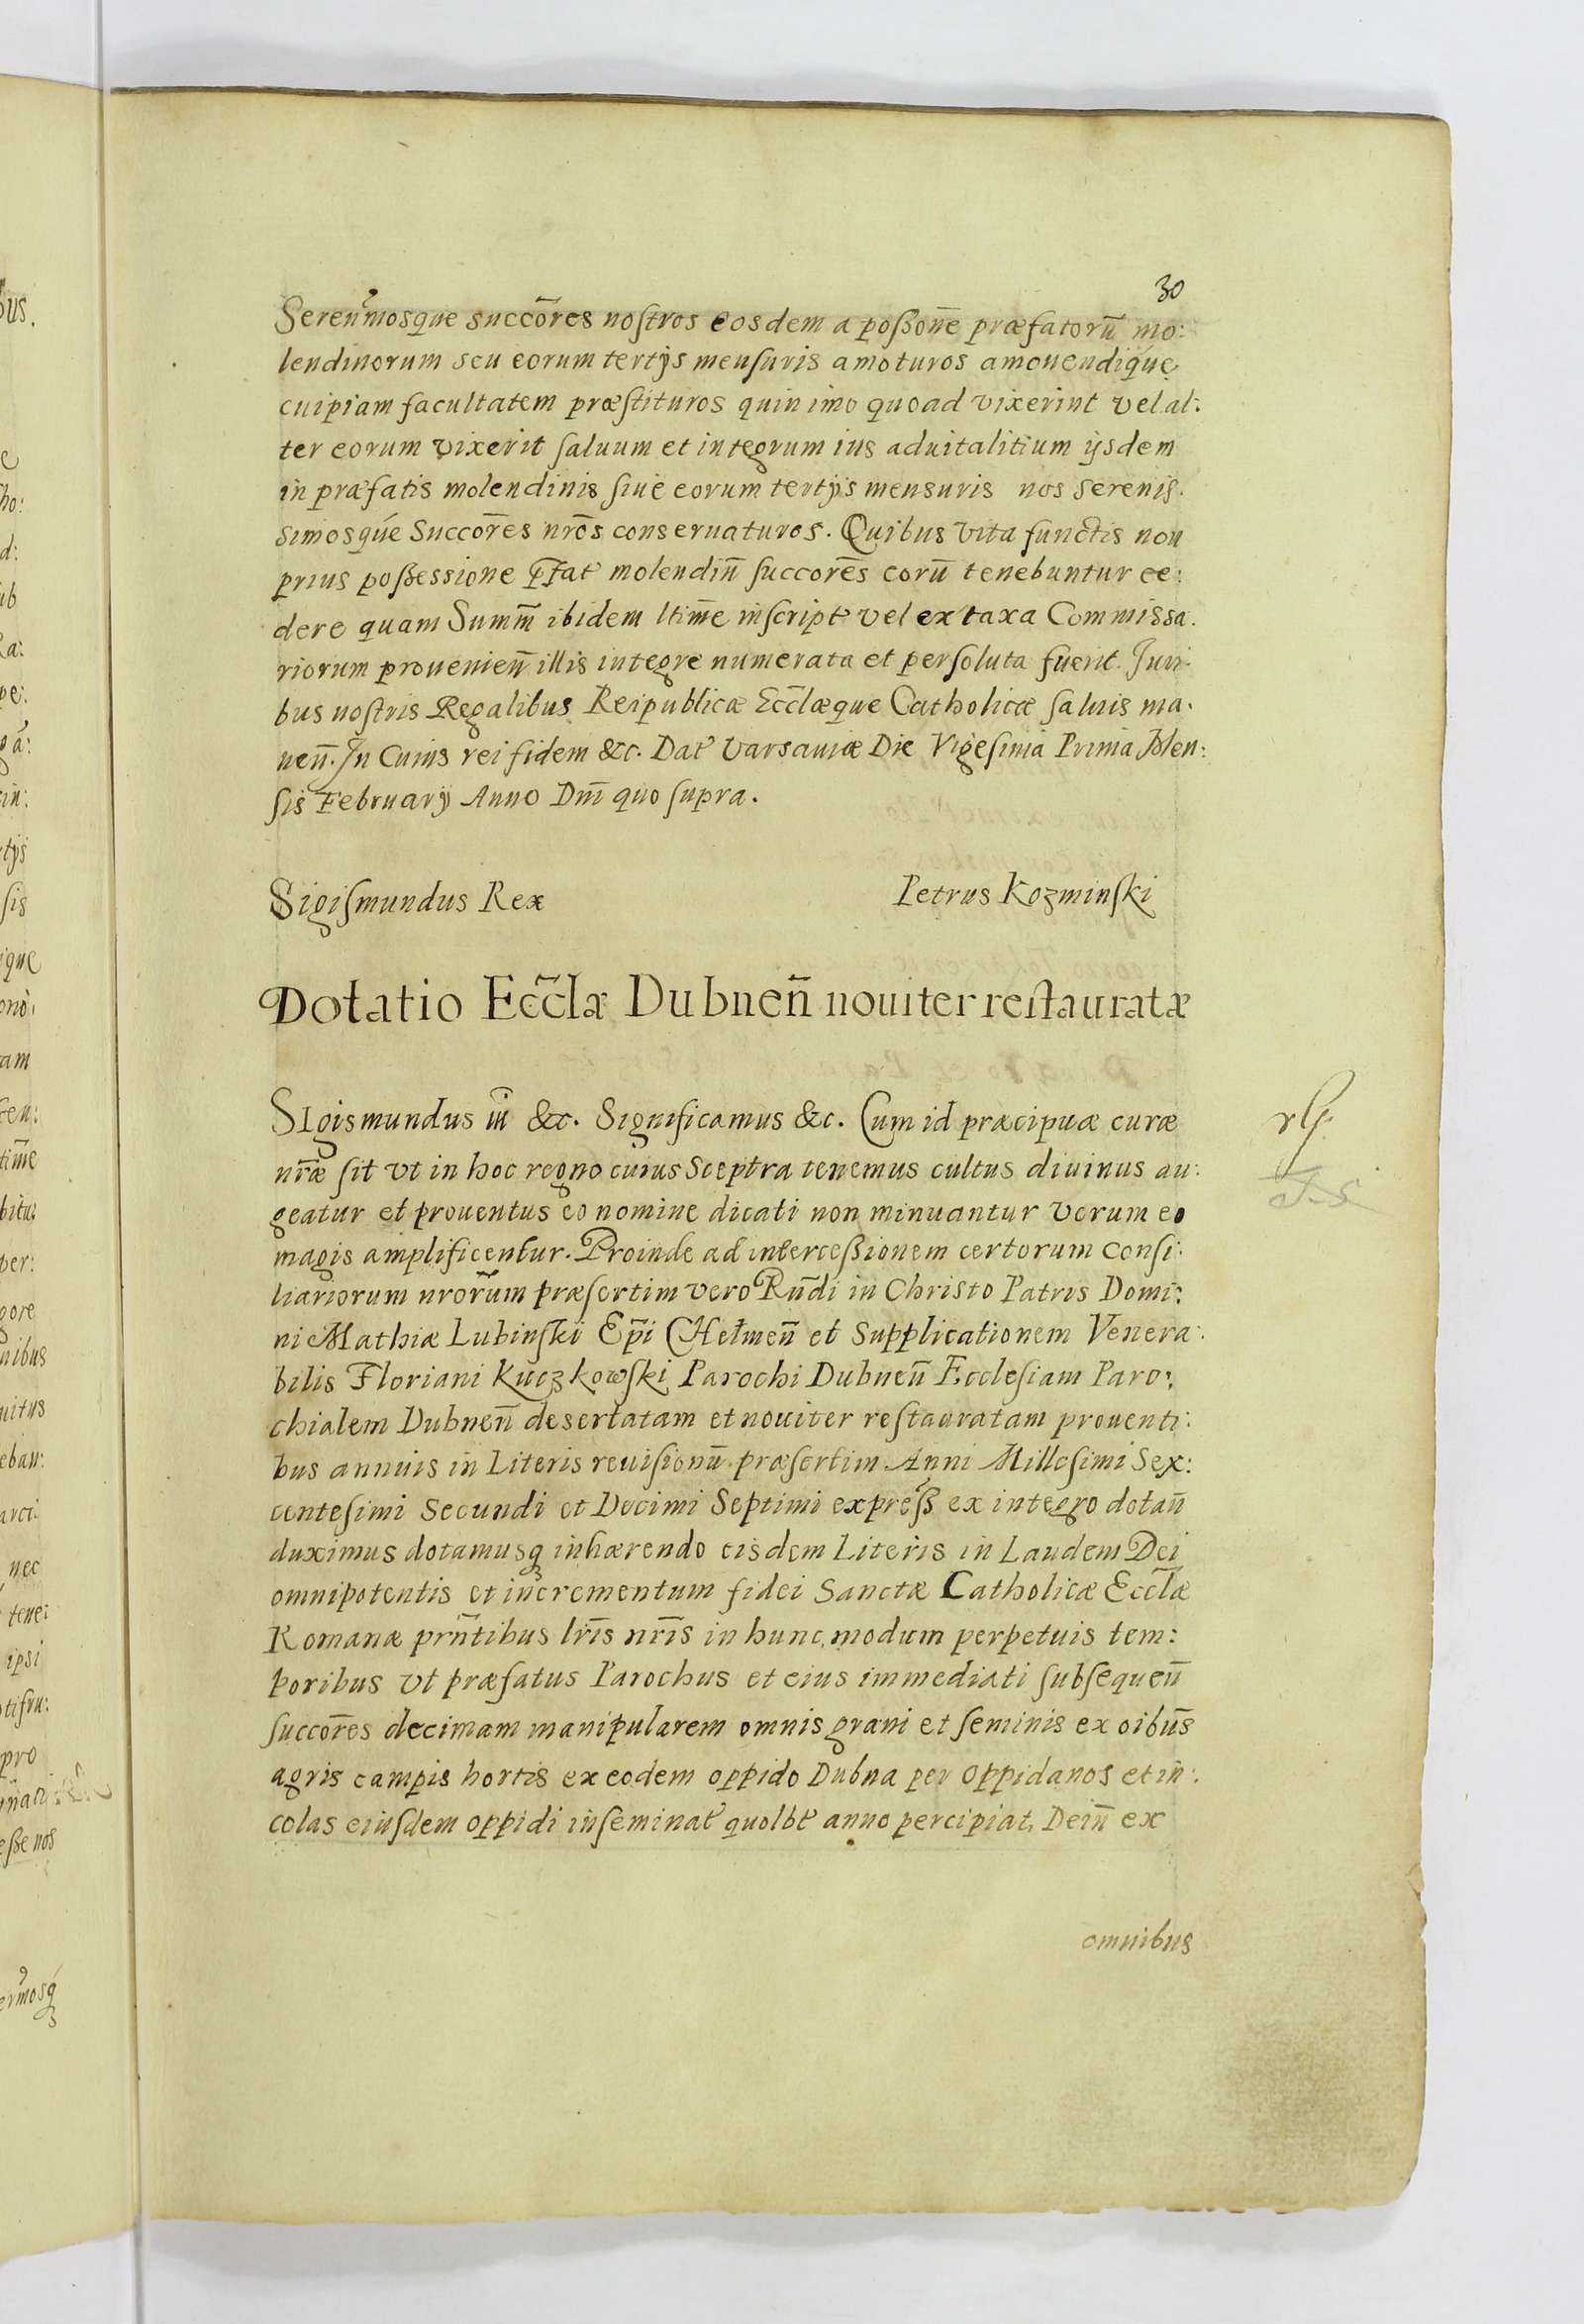 30
Seren̄mosque succōres nostros eosdem a poßon̄e præfatorū mo:
lendinorum seu eorum tertijs mensuris amoturos amouendique
cuipiam facultatem præstituros quin imo quoad vixerint vel al:
ter eorum vixerit saluum et integrum ius aduitalitium ijsdem
in præfatis molendinis siue eorum tertijs mensuris nos serenis.
simosque Succōres nrōs conseruaturos. Quibus vita functis non
prius poßessione p̄fat molendin̄ succorēs eorū tenebuntur ce:
dere quam Summ̄ ibidem ltim̄e inscript vel ex taxa Commissa.
riorum prouenien̄ illis integre numerata et persoluta fuerit. Juri-
bus nostris Regalibus Reipublicæ Eccl̄æque Catholicæ saluis ma.
nen̄. In Cuius rei fidem &c. Dat Varsauiæ Die Vigesima Prima Men:
sis February Anno Dnī quo supra.
Sigismundus Rex Petrus Kozminski
Dotatio Ecc̄læ Dubnen̄ nouiter restauratæ
SIgismundus iii &c. Significamus &c. Cum id præcipuæ curæ
nr̄æ sit vt in hoc regno cuius Sceptra tenemus cultus diuinus au:
geatur et prouentus eo nomine dicati non minuantur verum eo
magis amplificentur. Proinde ad interceßionem certorum Consi:
liariorum nrorūm præsertim vero Rn̄di in Christo Patris Domi:
ni Mathiæ Lubinski Ep̄i Chełmen̄ et Supplicationem Venera:
bilis Floriani Kuczkowski Parochi Dubnen̄ Ecclesiam Paro:
chialem Dubnen̄ desertatam et nouiter restauratam prouenti:
bus annuis in Literis reuisionū præsertim Anni Millesimi Sex:
centesimi Secundi et Decimi Septimi expreß ex integro dotan̄
duximus dotamusq inhærendo eisdem Literis in Laudem Dei
omnipotentis et incrementum fidei Sanctæ Catholicæ Eccl̄æ
Romanæ prn̄tibus lrīs nrīs in hunc modum perpetuis tem:
poribus vt præfatus Parochus et eius immediati subsequen̄
succorēs decimam manipularem omnis grani et seminis ex oibūs
agris campis hortis ex eodem oppido Dubna per Oppidanos et in:
colas eiusdem oppidi inseminat quolbt anno percipiat, Dein̄ ex
omnibus